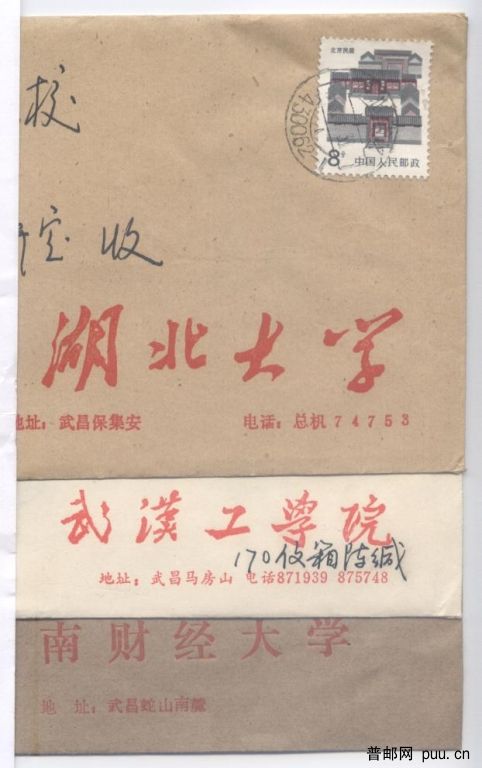 北京民居
8分
中国人民邮政
430062
校
收
湖北大学
地址：武昌保集安 电话：总机74753
武漢工学院
170收箱陈缄
地址：武昌马房山 电话871939 875748
南财经大学
地 址：武昌蛇山南麓
普邮网 puu.cn